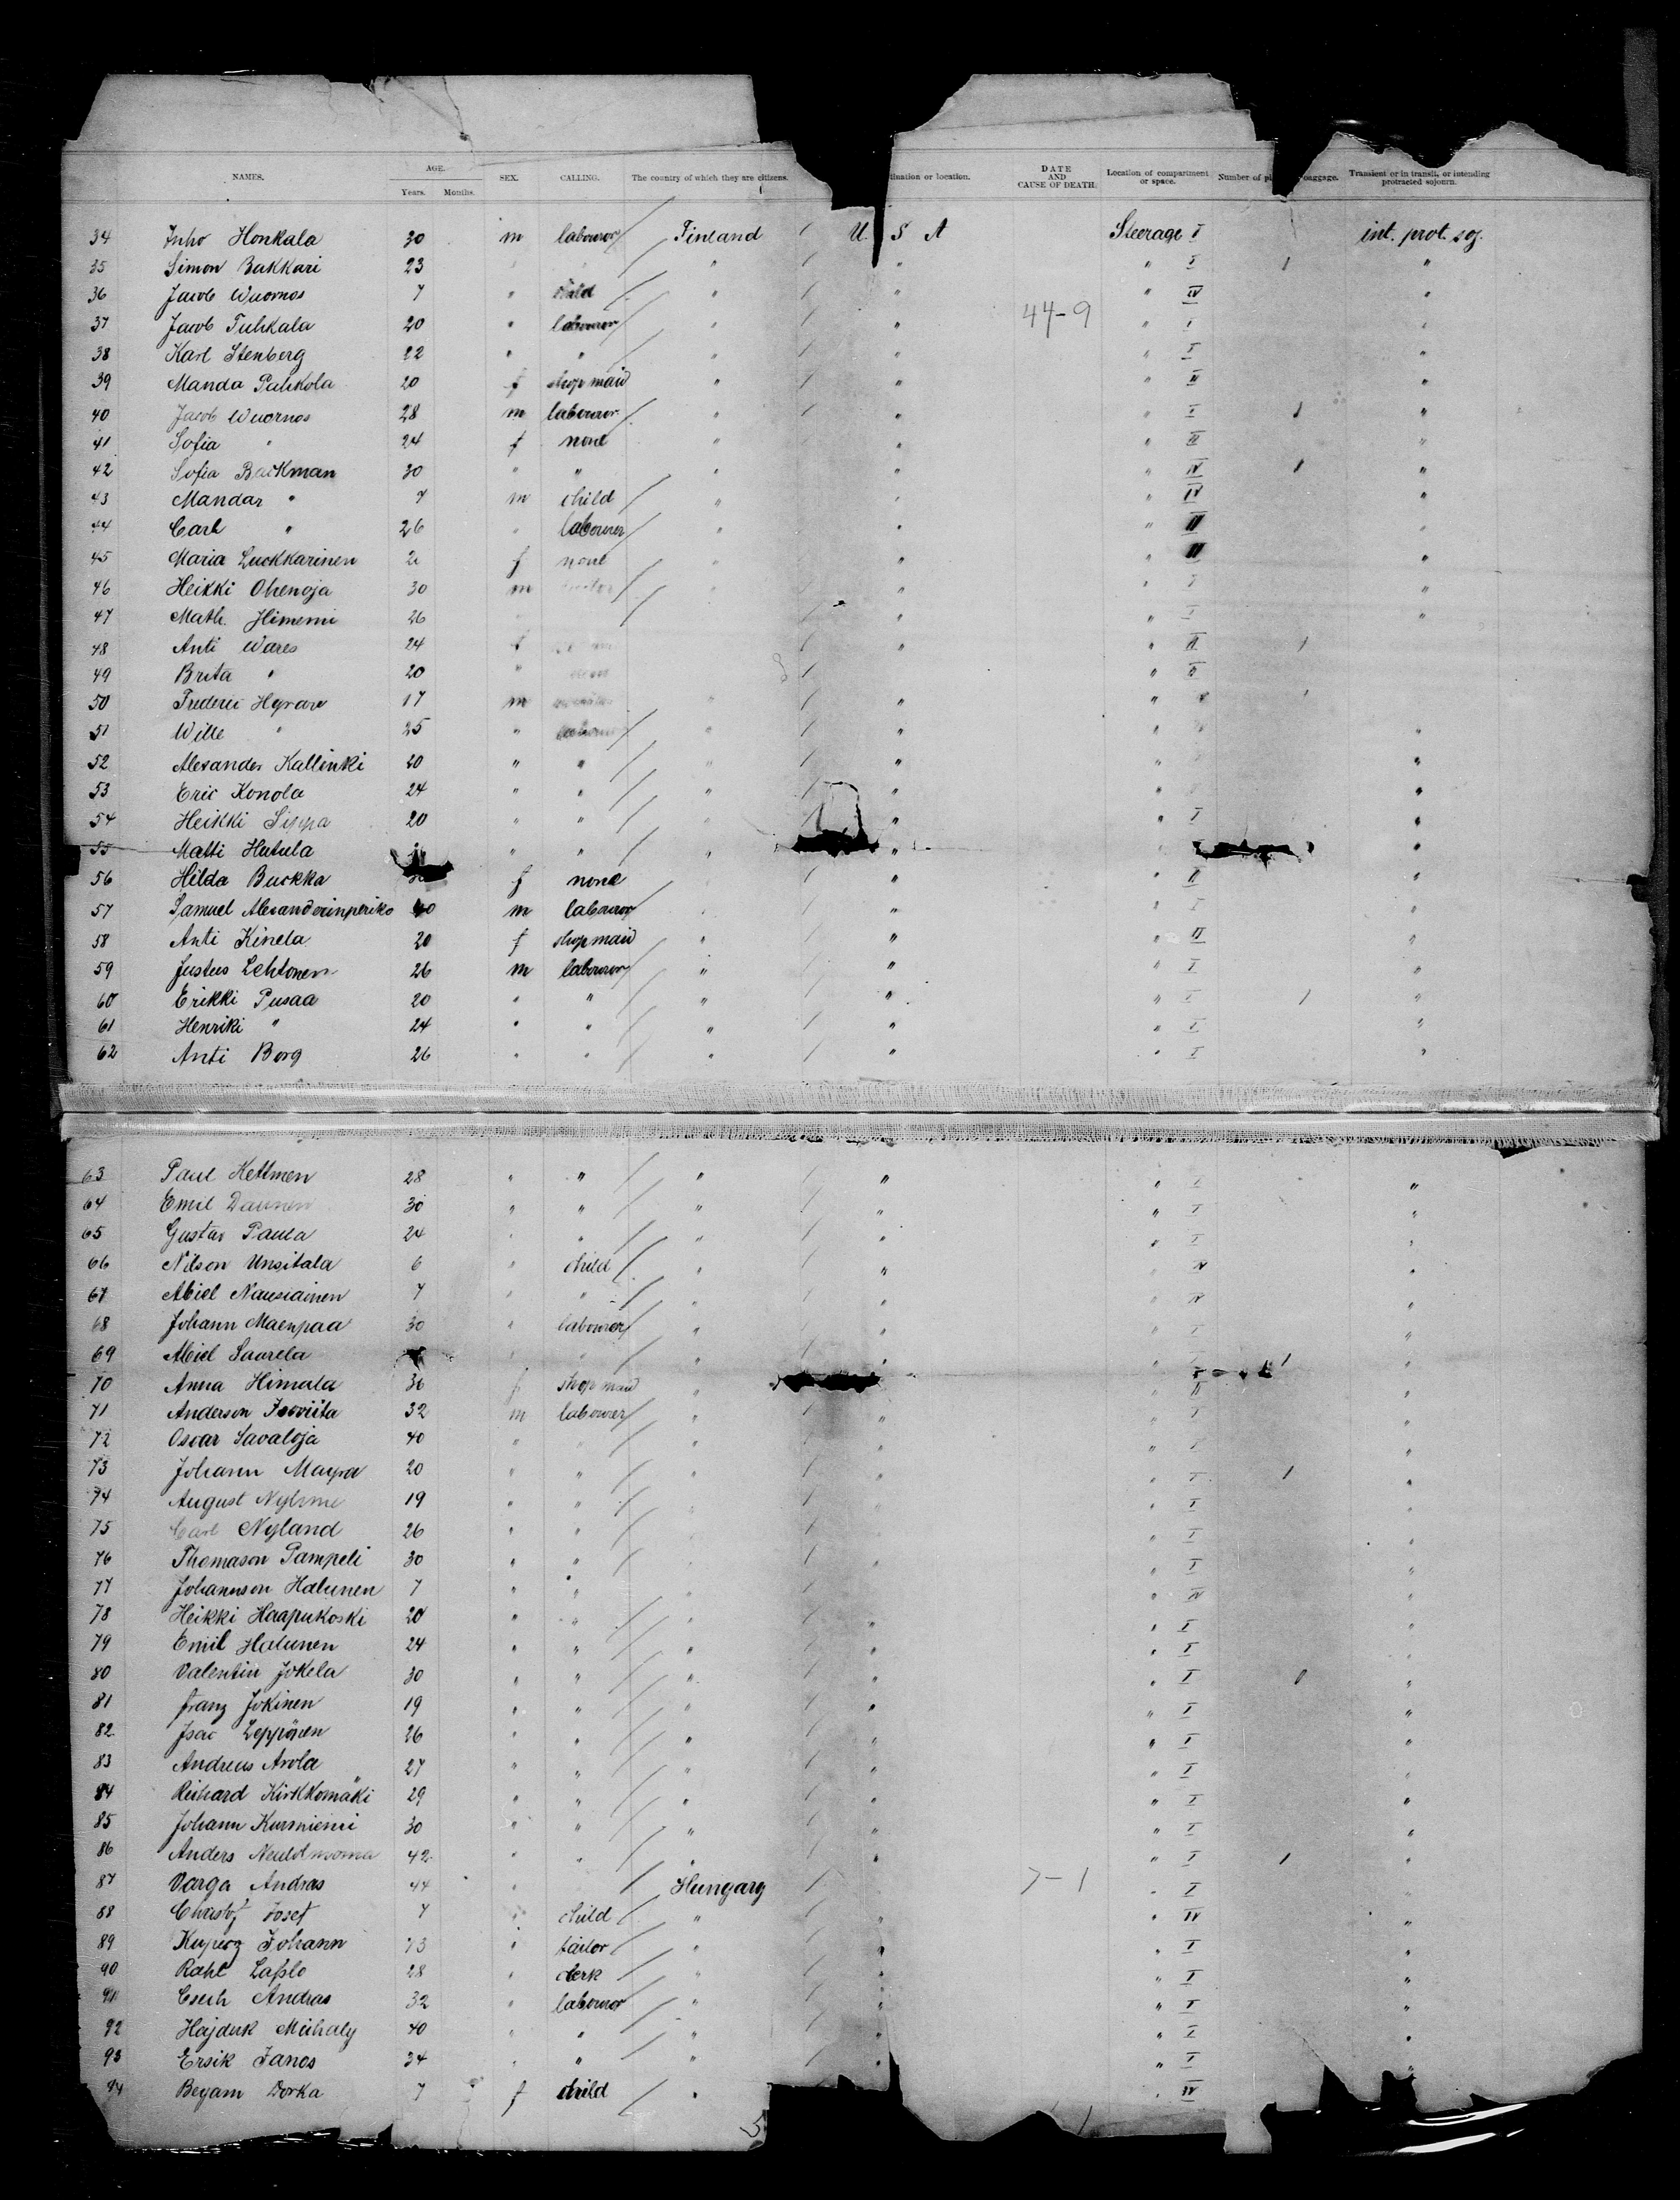 NAMES. AGE. SEX. CALLING. The country of which they are citizens. ination or location. DATE AND CAUSE OF DEATH. Location of compartment or space. Number of pi baggage. Transient or in transit, or intending protracted sojourn.
Years. Months.
34 Juho Honkala 30 m labourer Finland / U. S A Steerage I int. prot. soj.
35 Simon Bakkari 23 " / " " I 1 "
36 Jacob Wuornos 7 " child " / " " IV "
37 Jacob Tuhkala 20 " labourer " / " 44-9 " I "
38 Karl Stenberg 22 " " " / " " I "
39 Manda Pahkola 20 f shop maid " / " " II "
40 Jacob Wuornos 28 m labourer " / " " I 1 "
41 Sofia " 24 f none " / " " II "
42 Sofia Backman 30 " " " / " " IV 1 "
43 Mandar " 7 m child " / " " IV "
44 Carl " 26 " labourer " / " " II "
45 Maria Luckkarinen f none " / " " II "
46 Heikki Ohenoja 30 m " / " " I "
47 Math. 26 / " " I "
48 Anti Wares 24 f / " " II 1
49 Brita " 20 " / " II
50 17 m " / " " 1
51 Wille " 25 " " / " " "
52 Alexander Kallinki 20 " " " / " " "
53 Eric Konola 24 " " " / " " "
54 Heikki Sippa 20 " " " / " " I "
55 Matti Hutula " " " " "
56 Hilda Buckka f none / " " II "
57 Samuel 40 m labourer / " " I "
58 Anti Kinela 20 f shop maid " / " " II "
59 Justus Lehtonen 26 m labourer " / " " I "
60 Erikki Pusaa 20 " " " / " " I 1 "
61 Henriki " 24 " " " / " " I "
62 Anti Borg 26 " " " / " " I "
63 Paul Kettmen 28 " " " / " " I "
64 Emil 30 " " " / " " I "
65 Gustav Paula 24 " " " / " " I "
66 Nilson Unsitala 6 " child " / " " IV "
67 Abiel Nausiainen 7 " " " / " " IV "
68 Johann Maenpaa 30 " labourer " / " " I "
69 Abiel Saurela " " " / " " 1 "
70 Anna Himala 36 f shop maid " " II "
71 Anderson Isoviita 32 m labourer " / " " I "
72 Oscar Savaloja 40 " " " / " " I "
73 Johann Maypa 20 " " " / " " I 1 "
74 August 19 " " / " " I "
75 Carl Nyland 26 " " / " I "
76 Thomason Pampeli 30 " " / " " I "
77 Johannson Halunen 7 " " " / " IV "
78 Heikki Haapukoski 20 " " " / " " I "
79 Emil Halunen 24 " " " / " " I "
80 Valentin Jokela 30 " " " / " " I 1 "
81 Franz Jokinen 19 " " " / " " I "
82 Isac Leppönen 26 " " " / " " I "
83 Andreas Arola 27 " " " / " " I "
84 Reihard Kirkkomäki 29 " " " / " " I "
85 Johann Kurniemi 30 " " " / " " I "
86 Anders 42 " " " / " " I 1 "
87 Varga Andras 44 " Hungary / 7-1 " I "
88 Josef 7 " child " / " " IV "
89 Johann " tailor " / " " I "
90 Rahl Laszlo 28 " clerk " / " " I "
91 Cseh Andras 32 " labourer " / " " I "
92 Hajduk Mihaly 40 " " " / " " I "
93 Ersik Janos 34 " " " / " " I "
94 Begam Dorka 7 f child " " IV